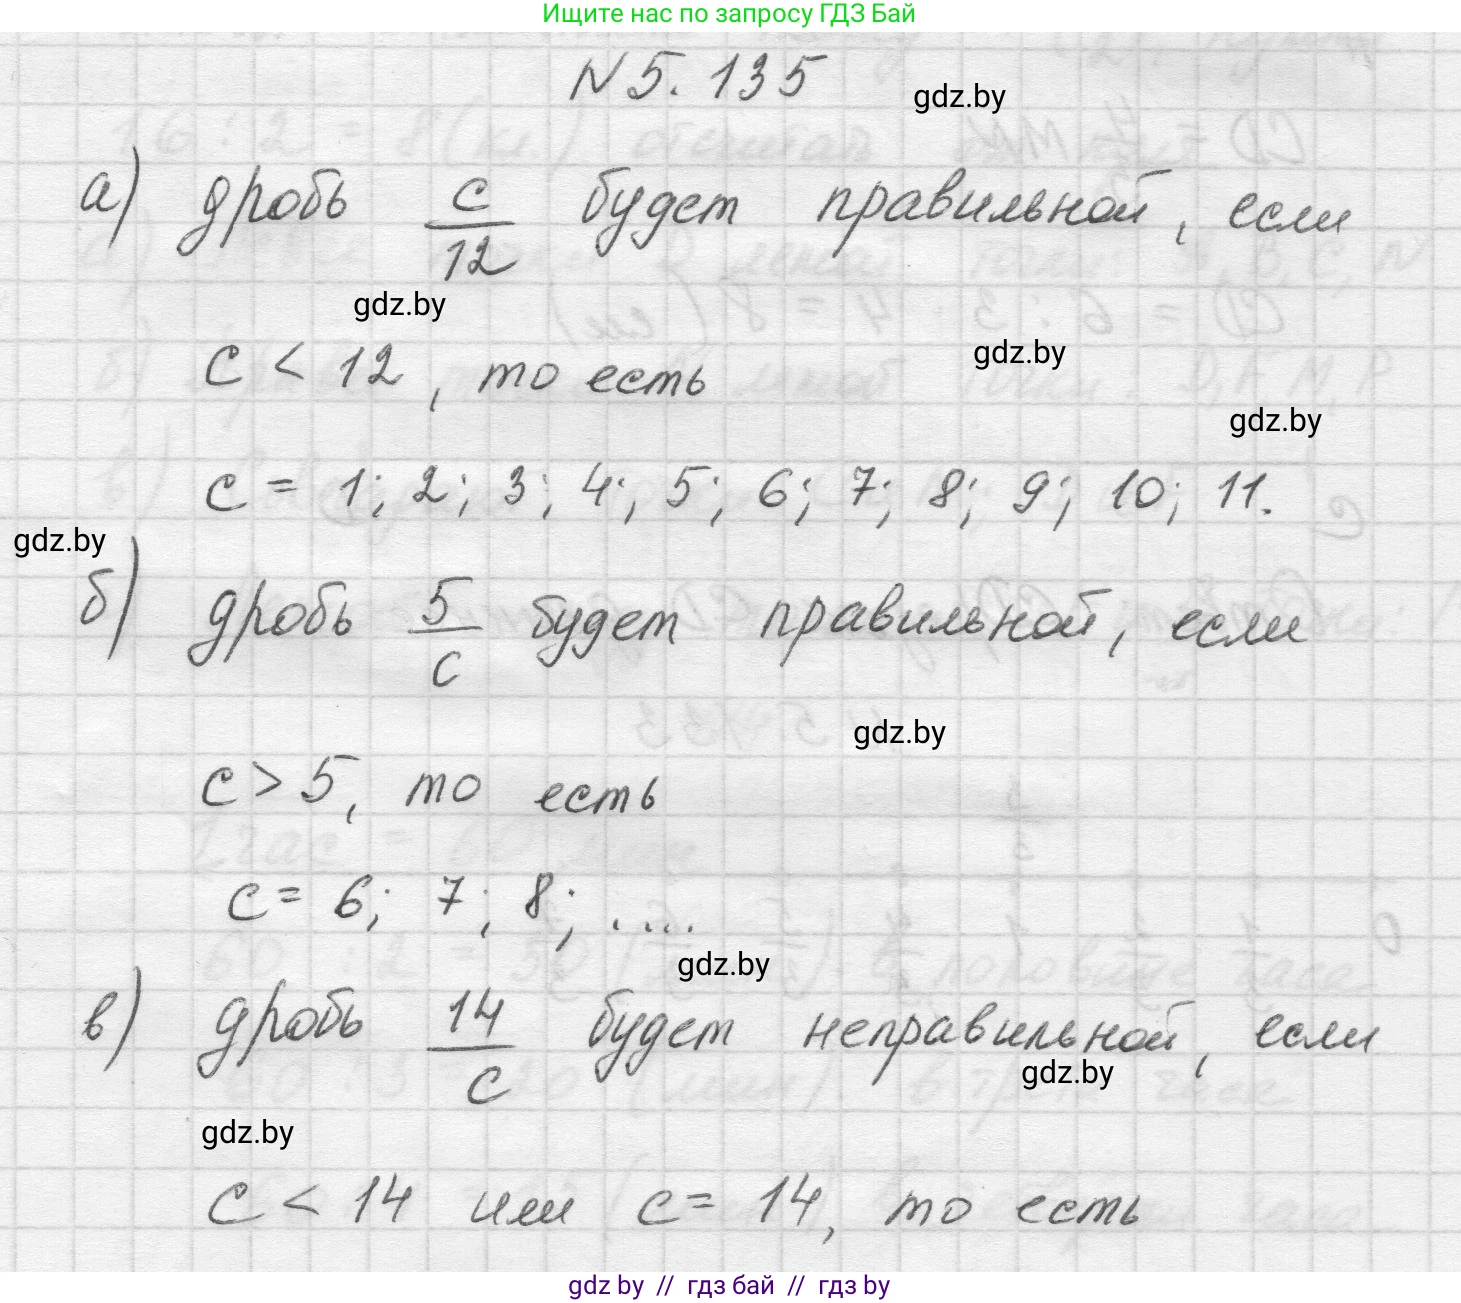 Ищите нас по запросу ГДЗ Бай
N 5. 135
gdz.by
а) дробь c/12 будет правильной, если
gdz.by
c < 12, то есть
gdz.by
gdz.by
c = 1; 2; 3; 4; 5; 6; 7; 8; 9; 10; 11.
gdz.by
б) дробь 5/c будет правильной, если
gdz.by
c > 5, то есть
c = 6; 7; 8; ....
gdz.by
в) дробь 14/c будет неправильной, если
gdz.by
gdz.by
c < 14 или c = 14, то есть
gdz by // гдз бай // гдз by